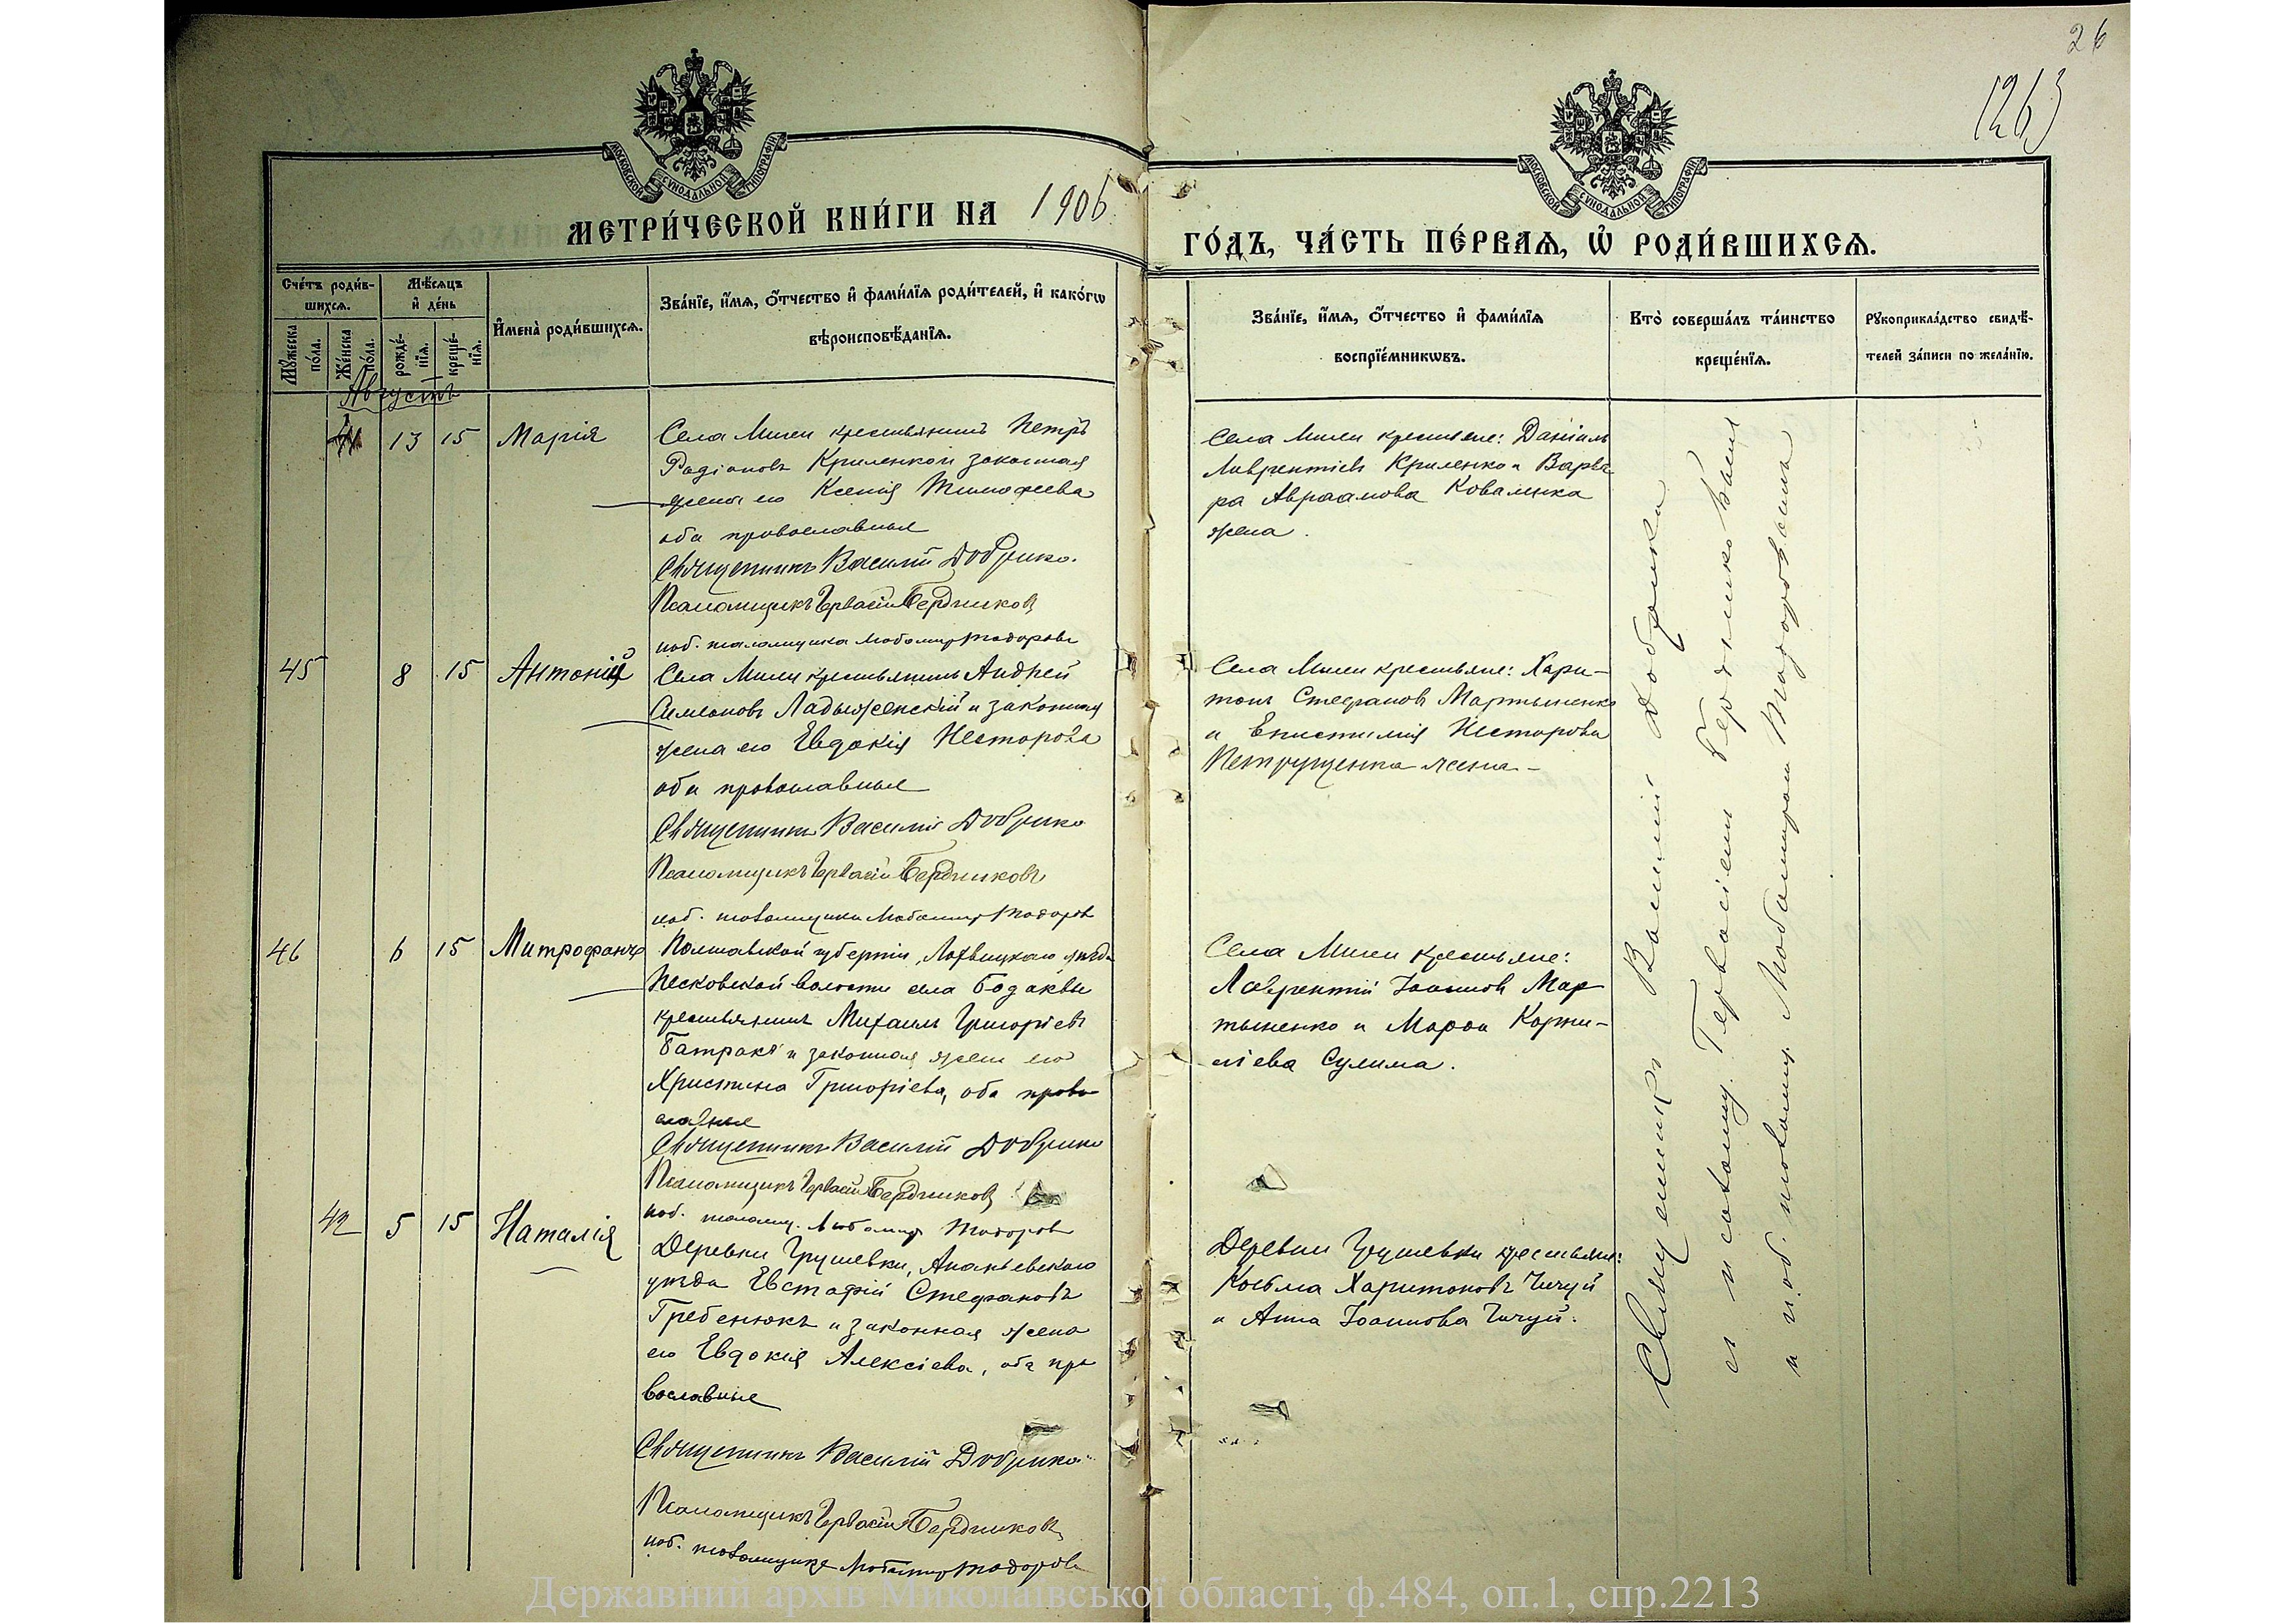 26
1263
МОСКОВСКОЙ СѴНОДАЛЬНОЙ ТИПОГРАФІИ
МОСКОВСКОЙ СѴНОДАЛЬНОЙ ТИПОГРАФІИ
МЕТРИ́ЧЕСКОЙ КНИ́ГИ НА 1906
ГО́ДЪ, ЧА́СТЬ ПЕ́РВАѦ, Ѡ҆ РОДИ́ВШИХСѦ.
Сче́тъ роди́в-
шихсѧ.
Мꙋ́жеска
по́ла.
Же́нска
по́ла.
Мѣ́сѧцъ
и҆ де́нь
рожде́-
нїѧ.
креще́-
нїѧ.
И҆мена̀ роди́вшихсѧ.
Зва́нїе, и҆́мѧ, ѻ҆́тчество и҆ фами́лїѧ роди́телей, и҆ како́гѡ
вѣроисповѣ́данїѧ.
Зва́нїе, и҆́мѧ, ѻ҆́тчество и҆ фами́лїѧ
воспрїе́мникѡвъ.
Кто̀ соверша́лъ та́инство
креще́нїѧ.
Рꙋкоприкла́дство свидѣ́-
телей за́писи по жела́нїю.
Августъ
41 13 15 Марія
Села Мигеи крестьянинъ Петръ
Родіоновъ Криленко и законная
жена его Ксенія Тимофеева
оба православные
Священникъ Василій Добрико.
Псаломщикъ Гервасій Бердниковъ
иоб. псаломщика Любомир Тодоровъ
Села Мигеи крестьяне: Даніилъ
Лаврентіевъ Криленко и Варва
ра Авраамова Коваленка
жена.
45 8 15 Антоній
Села Мигеи крестьянинъ Андрей
Симеоновъ Ладыженскій и законная
жена его Евдокія Несторова
оба православные
Священникъ Василій Добрико
Псаломщикъ Гервасій Бердниковъ
иоб. псаломщика Любомир Тодоров
Села Мигеи крестьяне: Хари-
тонъ Стефановъ Мартыненко
и Епистимія Несторова
Петрущенка жена-
46 6 15 Митрофанъ
Полтавской губерніи, Лохвицкаго уѣзда
Песковской волости села Бодаквы
крестьянинъ Михаилъ Григоріевъ
Батракъ и законная жена его
Христина Григоріева, оба право
славные
Священникъ Василій Добрико
Псаломщикъ Гервасій Бердниковъ
иоб. псаломщ. Любомир Тодоров
Села Мигеи крестьяне:
Лаврентій Іоанновъ Мар
тыненко и Марѳа Корни-
ліева Сулима.
42 5 15 Наталія
Деревни Грушевки, Ананьевскаго
уѣзда Евстафій Стефановъ
Гребенюкъ и законная жена
его Евдокія Алексіева, оба пра
вославные
Священникъ Василій Добрико
Псаломщикъ Гервасій Бердниковъ
иоб. псаломщика Любомир Тодоровъ
Деревни Грушевки крестьяне:
Косьма Харитоновъ Чичуй
и Анна Іоаннова Чичуй.
Священникъ Василій Добрико
и псаломщ. Гервасіемъ Бердниковымъ
и иоб. псаломщ. Любомиромъ Тодоровымъ
Державний архів Миколаївської області, ф.484, оп.1, спр.2213